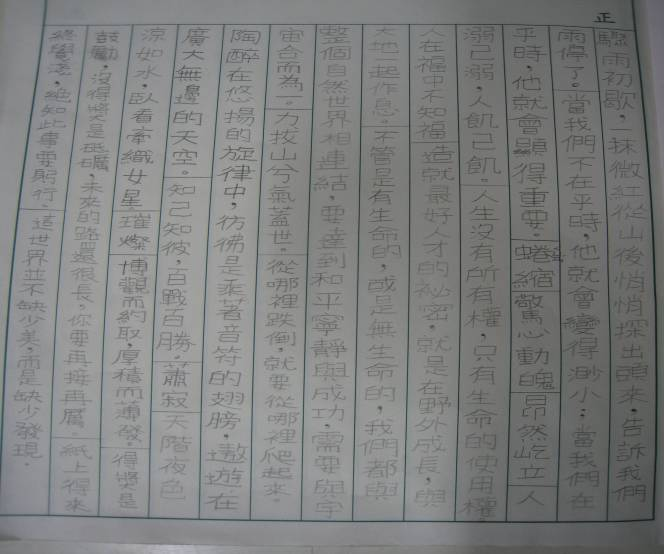 正
驟雨初歇，一抹微紅從山後悄悄探出頭來，告訴我們
雨停了。當我們不在乎時，他就會變得渺小；當我們在
乎時，他就會顯得重要。蜷縮驚心動魄昂然屹立人
溺己溺，人飢己飢。人生沒有所有權，只有生命的使用權。
人在福中不知福造就最好人才的祕密，就是在野外成長，與
大地一起作息。不管是有生命的，或是無生命的，我們都與
整個自然世界相連結，要達到和平寧靜與成功，需要與宇
宙合而為一。力拔山兮氣蓋世。從哪裡跌倒，就要從哪裡爬起來。
陶醉在悠揚的旋律中，彷彿是乘著音符的翅膀，遨遊在
廣大無邊的天空。知己知彼，百戰百勝。蕭寂天階夜色
涼如水，臥看牽織女星璀燦博觀而約取，厚積而薄發。得獎是
鼓勵，沒得獎是砥礪，未來的路還很長，你要再接再厲。紙上得來
終覺淺，絕知此事要躬行。這世界並不缺少美，而是缺少發現。